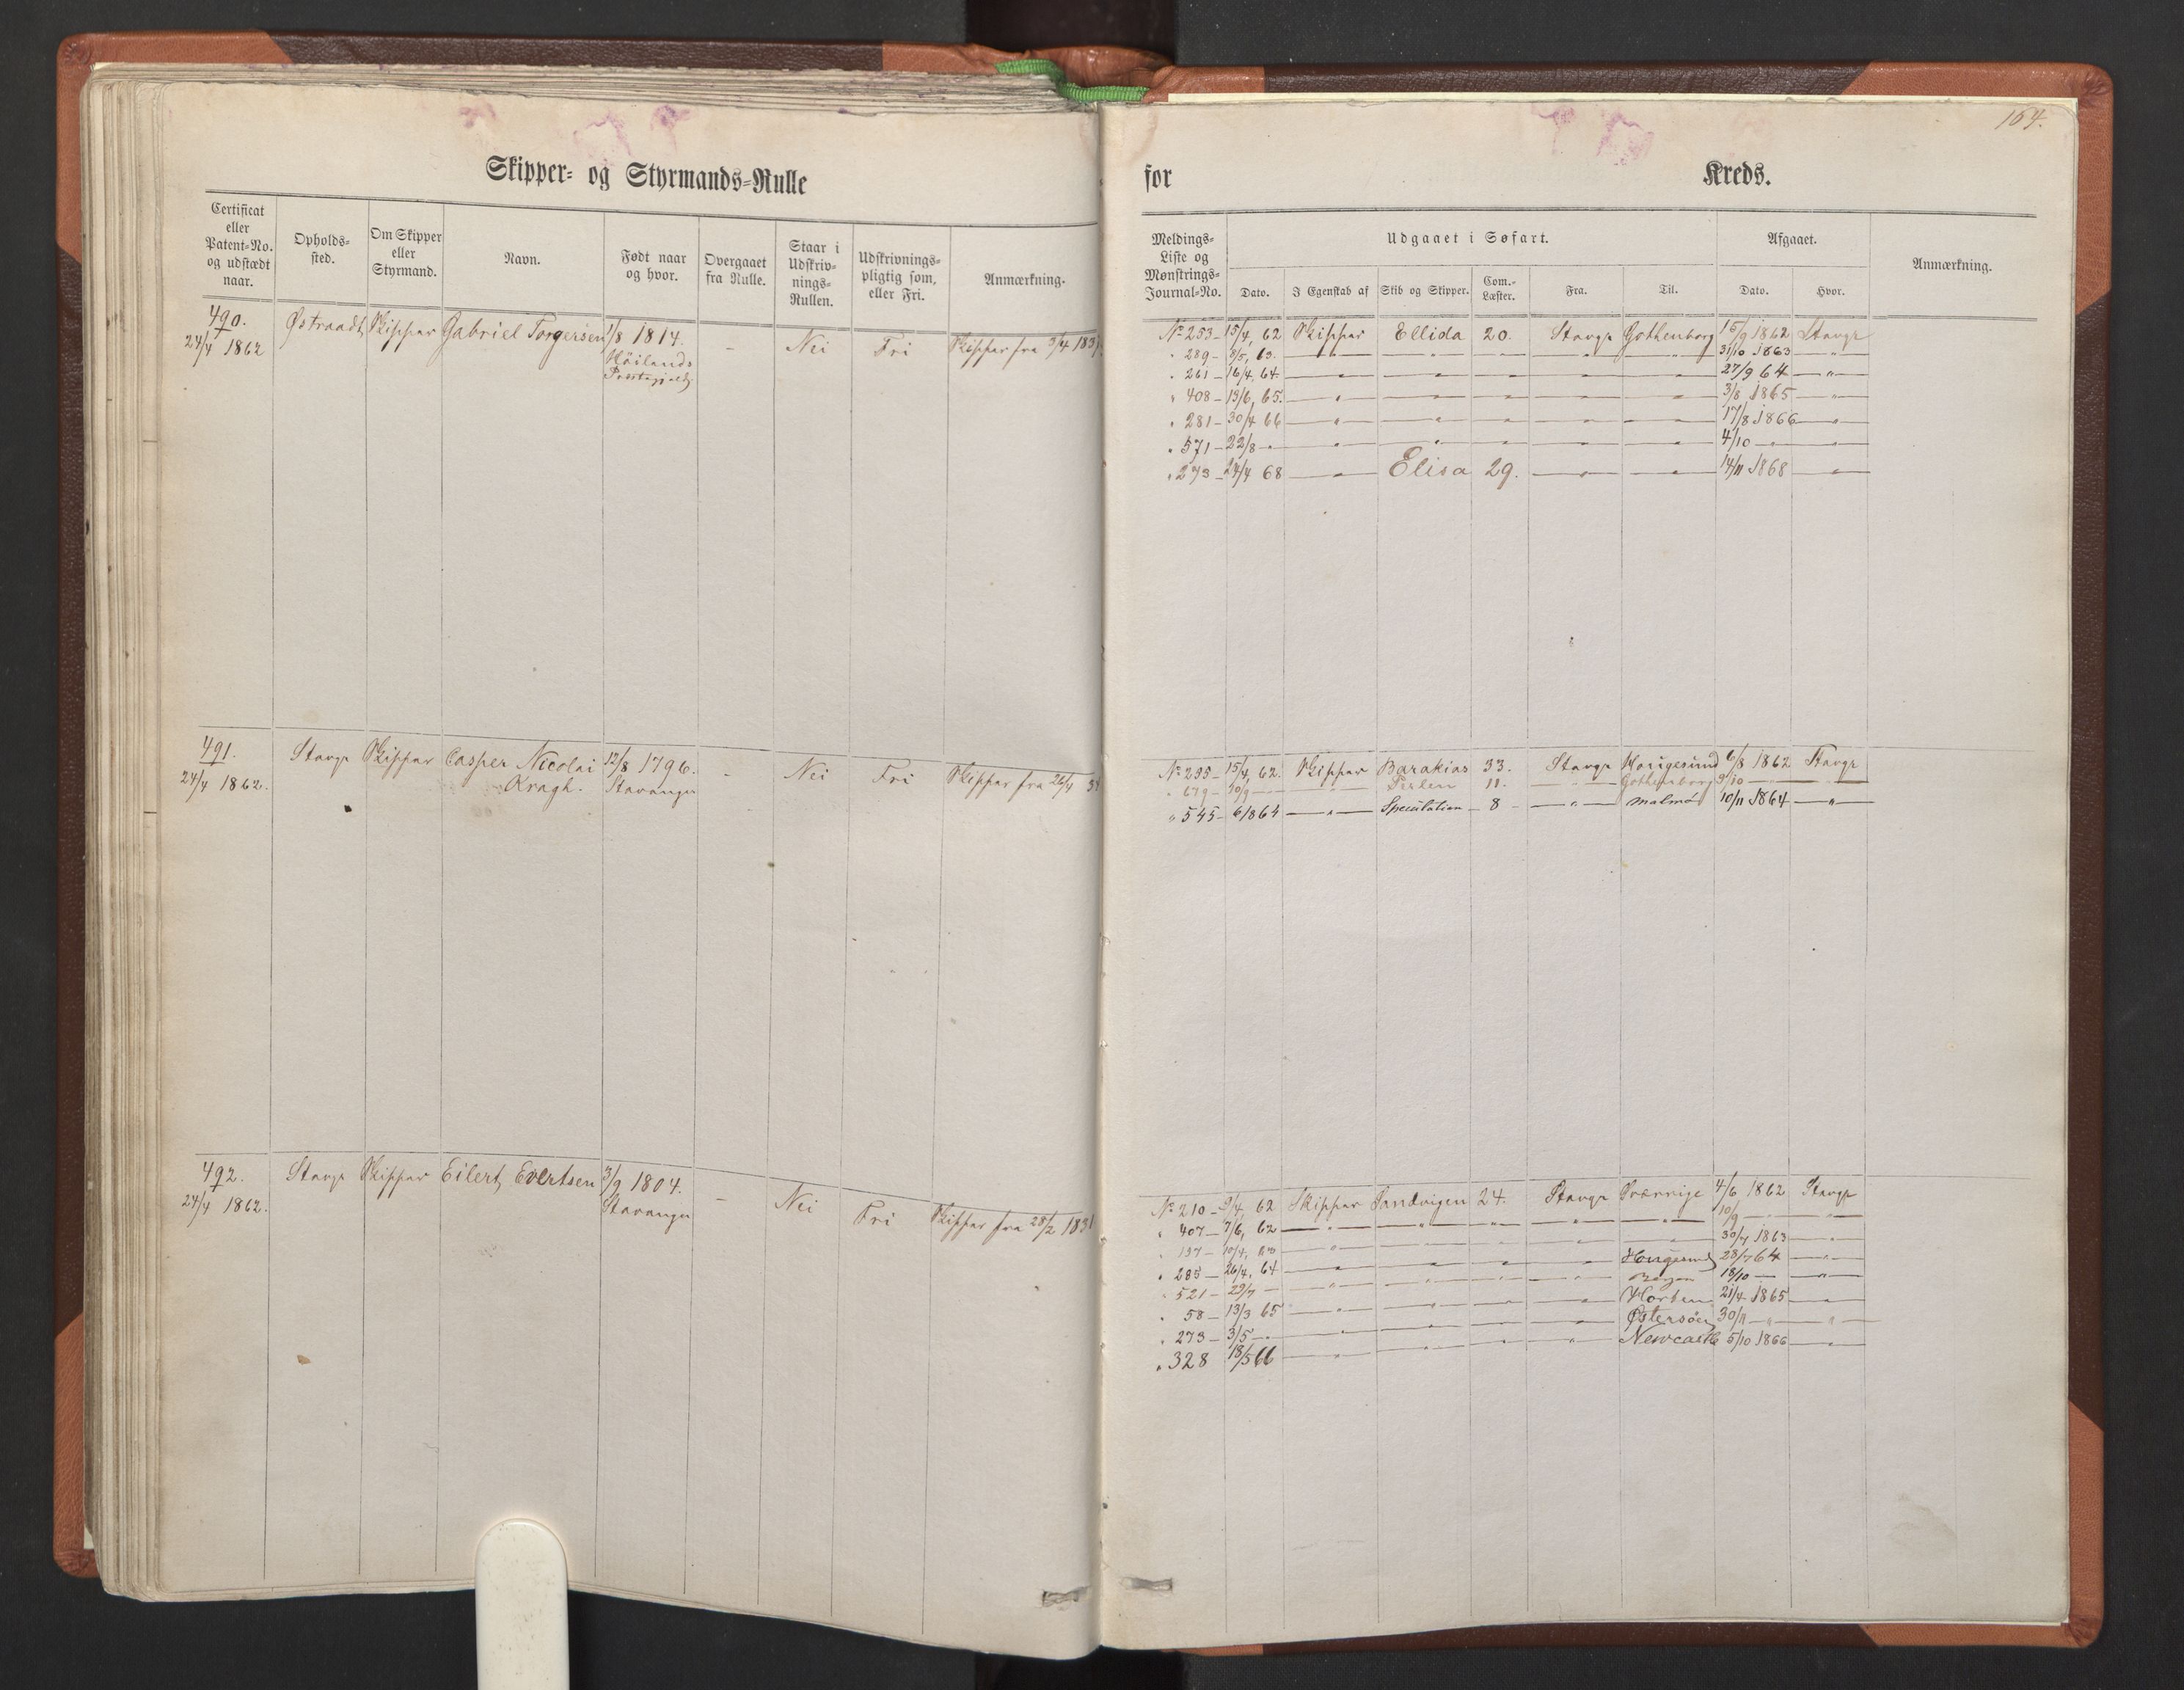 164.
Skipper- og Styrmands-Rulle
for Kreds.
Certificat eller Patent-No. og udstædt naar.
Opholds-sted.
Om Skipper eller Styrmand.
Navn.
Født naar og hvor.
Overgaaet fra Rulle.
Staar i Udskriv-nings-Rullen.
Udskrivnings-pligtig som, eller Fri.
Anmærkning.
Meldings-Liste og Mønstrings-Journal-No.
Udgaaet i Søfart.
Dato.
I Egenskab af
Skib og Skipper.
Com.-Læster.
Fra.
Til.
Afgaaet.
Dato.
Hvor.
Anmærkning.
490.
24/4 1862
Østraadt Skipper Gabriel Torgersen 1/8 1814.
Höilands
Præstegjeld
- Nei Fri Skipper fra 3/4 183
No 253- 15/4, 62 Skipper Ellida 20. Stavgr Gothenborg 16/9 1862 Stavgr
" 289- 8/5, 63. — " — 31/10 1863 — " —
" 261- 16/4, 64. — " — 27/9 64 — " —
" 408- 13/6, 65. — " — 3/8 1865 — " —
" 281- 30/4 66 — " — 17/8 1866 — " —
" 571- 22/8 - " — " — 4/10 — " —
" 273- 24/4 68 — " — Elisa 29. — " — 14/11 1868 — " —
491.
24/4 1862.
Stavgr Skipper Casper Nicolai
Kragh.
12/8 1796.
Stavanger
- Nei Fri Skipper fra 26/4
No 295- 15/4, 62. Skipper Barakias 33. Stavgr Horigesund 6/8 1862 Stavgr
" 679- 30/9 — " — Perlen 11. — " — Gothenborg 9/10 — " —
" 545- 6/8 64 — " — Speculation 8 — " — Malmö 10/11 1864 — " —
492.
24/4 1862.
Stavgr Skipper Eilert Evertsen 3/9 1804.
Stavanger
- Nei Fri Skipper fra 28/2 1831
No 210- 9/4, 62 Skipper Sandvigen 24. Stavgr Sverrige 4/6 1862 Stavgr
" 407- 7/6, 62 — " — 10/9 — " —
" 197- 10/4, — " — 30/7 1863 — " —
" 285- 26/4, 64 — " — Hougesund 28/7 64 — " —
" 521- 29/7 — " — Bergen 18/10 — " —
" 58- 13/3 65 — " — Horten 21/4 1865 — " —
" 273- 3/5 - " — " — Østersøen 30/11 — " —
" 328 18/5 66 — " — Newcastle 5/10 1866 — " —